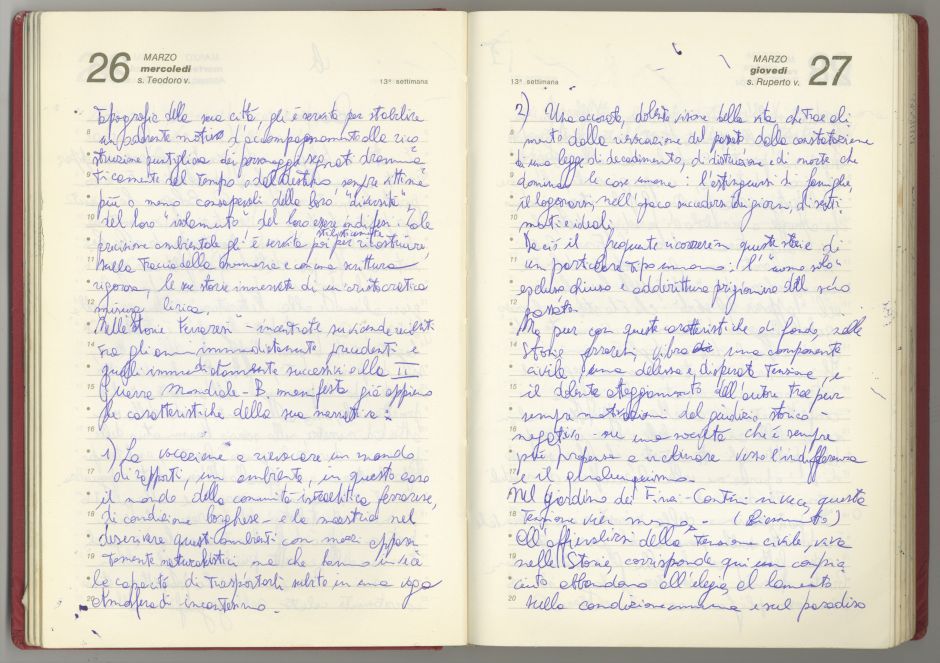 26
MARZO
mercoledì
s. Teodoro v.
13ª settimana
topografia della sua città, gli è servita per stabilire
un potente motivo d'accompagnamento alla rico
struzione puntigliosa dei personaggi segnati dramma
ticamente dal tempo e dal destino, sempre vittime
più o meno consapevoli della loro "diversità",
del loro "isolamento" del loro essere indifesi. Tale
stilisticamente
precisione ambientale gli è servita poi per ricostruire,
sulla traccia della memoria e con una scrittura
rigorosa, le sue storie immerse di un'aristocratica
misura lirica.
Nelle storie ferraresi - incentrate su vicende verificate
tra gli anni immediatamente precedenti e
quelli immediatamente successivi alla II
Guerra Mondiale - B. manifesta già appieno
le caratteristiche della sua narrativa:
1) La vocazione a rievocare un mondo
di rapporti, un ambiente, in questo caso
il mondo della comunità israelitica ferrarese,
di condizione borghese - e la maestria nel
descrivere questi ambienti con modi apparen
temente naturalistici ma che hanno in sé
la capacità di trasportarli subito in una vaga
atmosfera di incantesimo -
13ª settimana
MARZO
giovedì
s. Ruperto v.
27
2) Una accorata, dolente visione della vita che trae ali
mento dalla rievocazione del passato dalla constatazione
di una legge di decadimento, di distruzione e di morte che
domina le cose umane: l'estinguersi di famiglie,
il logorarsi, nell'opaco succedersi dei giorni, di senti
menti e ideali,
Da ciò il frequente ricorrere in queste storie di
un particolare tipo umano: l'"uomo solo"
escluso chiuso e addirittura prigioniero del suo
passato.
Ma pur con queste caratteristiche di fondo, nelle
Storie ferraresi, vibra una componente
civile, una delusa e disperata tensione, e
il dolente atteggiamento dell'autore trae pur
sempre motivazioni dal giudizio storico -
negativo - su una società che è sempre
più propensa a inclinare verso l'indifferenza
e il
Nel giardino dei Finzi-Contini invece, questa
tensione vien meno -
All'affievolirsi della tensione civile, viva
nelle Storie, corrisponde qui un compia
ciuto abbandono all'elegia, al lamento
sulla condizione umana e sul paradiso